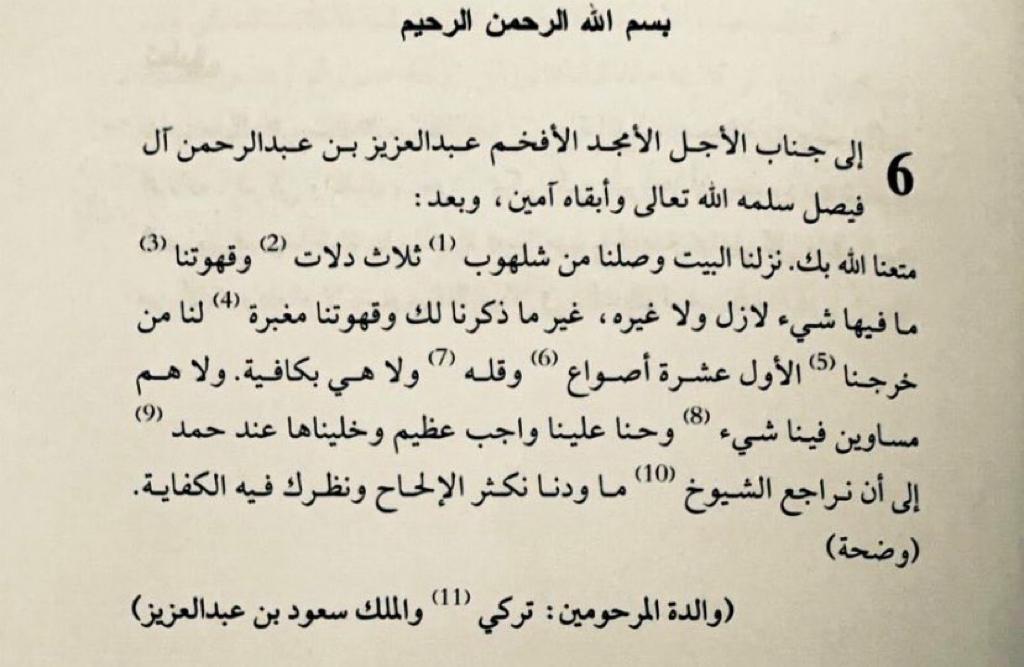 بسم الله الرحمن الرحيم
6 إلى جناب الأجل الأمجد الأفخم عبدالعزيز بن عبدالرحمن آل
فيصل سلمه الله تعالى وأبقاه آمين، وبعد:
متعنا الله بك. نزلنا البيت وصلنا من شلهوب (1) ثلاث دلات (2) وقهوتنا (3)
ما فيها شيء لازل ولا غيره، غير ما ذكرنا لك وقهوتنا مغبرة (4) لنا من
خرجنا (5) الأول عشرة أصواع (6) وقله (7) ولا هي بكافية. ولا هم
مساوين فينا شيء (8) وحنا علينا واجب عظيم وخليناها عند حمد (9)
إلى أن نراجع الشيوخ (10) ما ودنا نكثر الإلحاح ونظرك فيه الكفاية.
(وضحة)
(والدة المرحومين: تركي (11) والملك سعود بن عبدالعزيز)